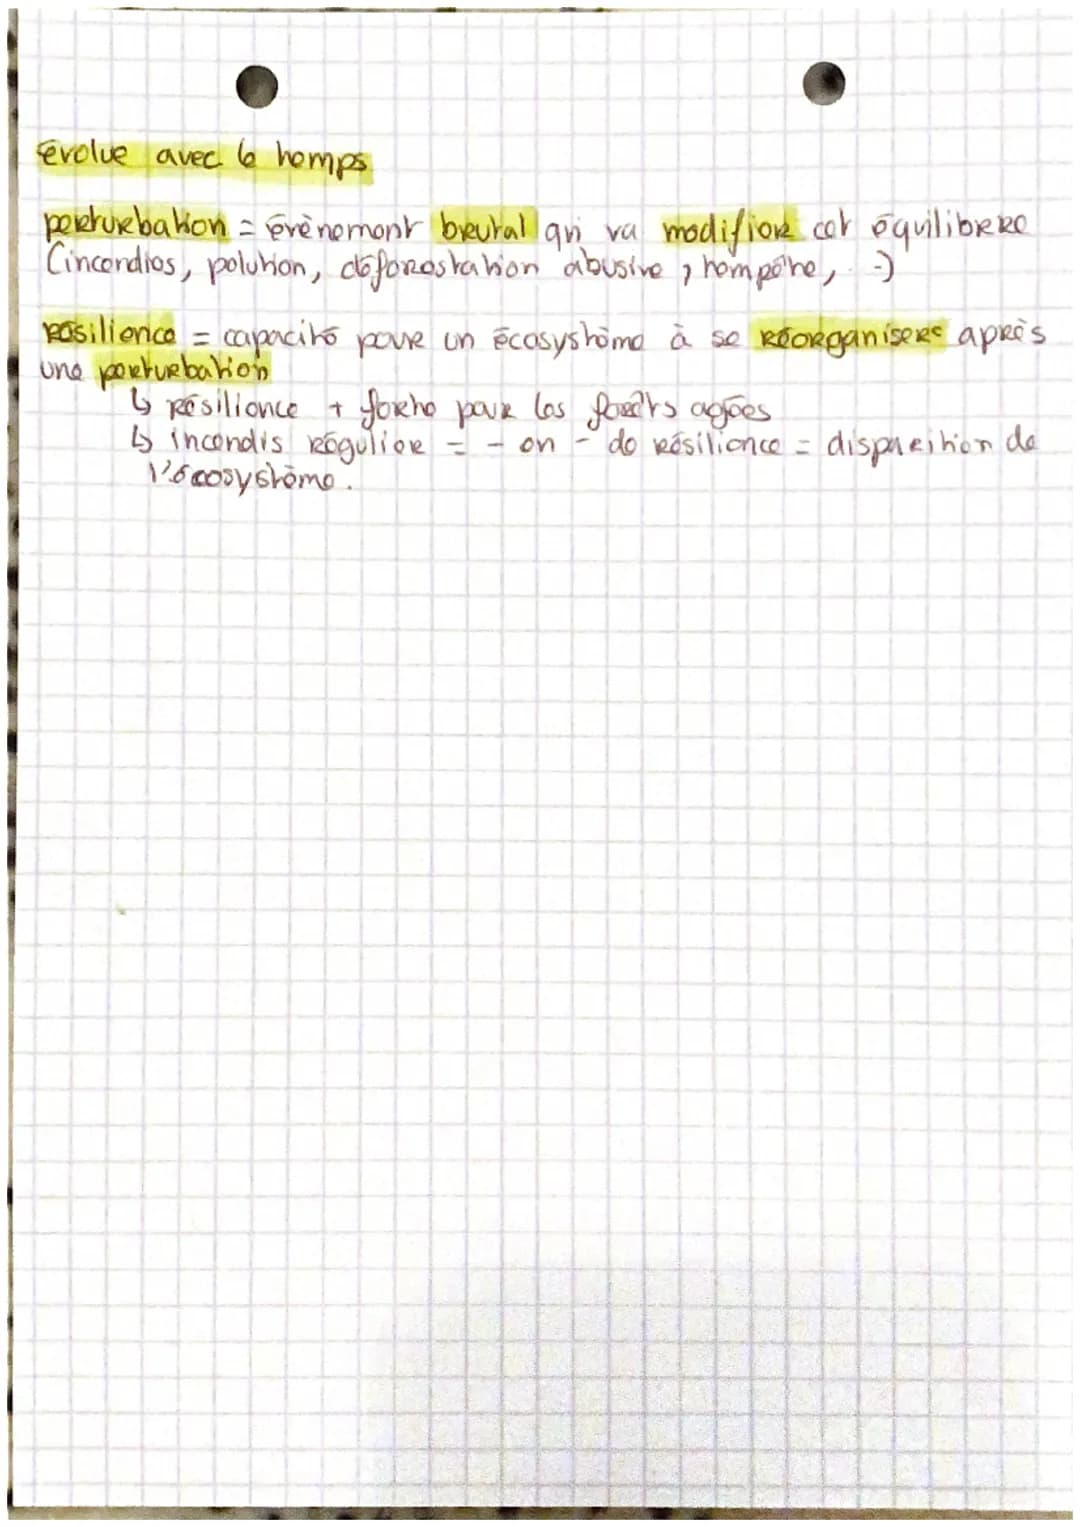 évolue avec le temps
perturbation = évènement brutal qui va modifier cet équilibre
(incendies, polution, déforestation abusive, tempête, ...)
résilience = capacité pour un écosystème à se réorganiser après
une perturbation
↳ résilience + forte pour les forêts agées
↳ incendis régulier = - en - de résilience = disparition de
l'écosystème.